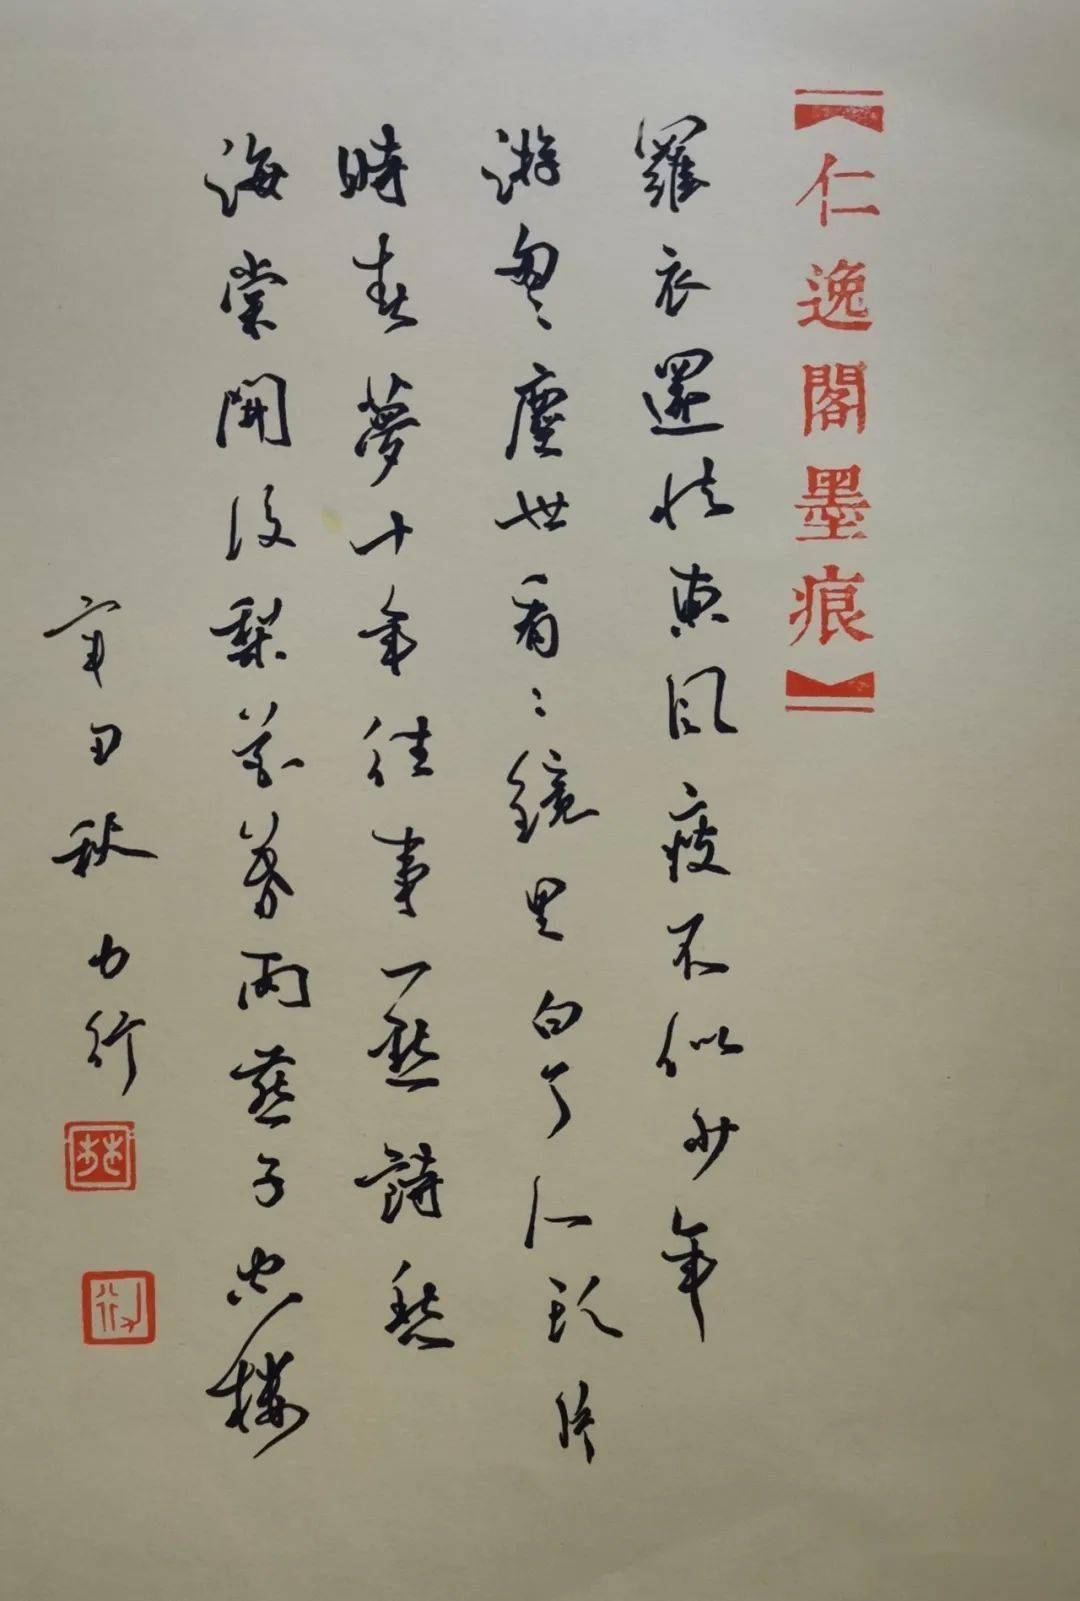 【仁逸閣墨痕】
羅衣還怯東風瘦不似少年
游匆〻塵世看〻鏡里白了人頭片
時春夢十年往事一點詩愁
海棠開後梨花暮雨燕子空樓
辛丑秋力行